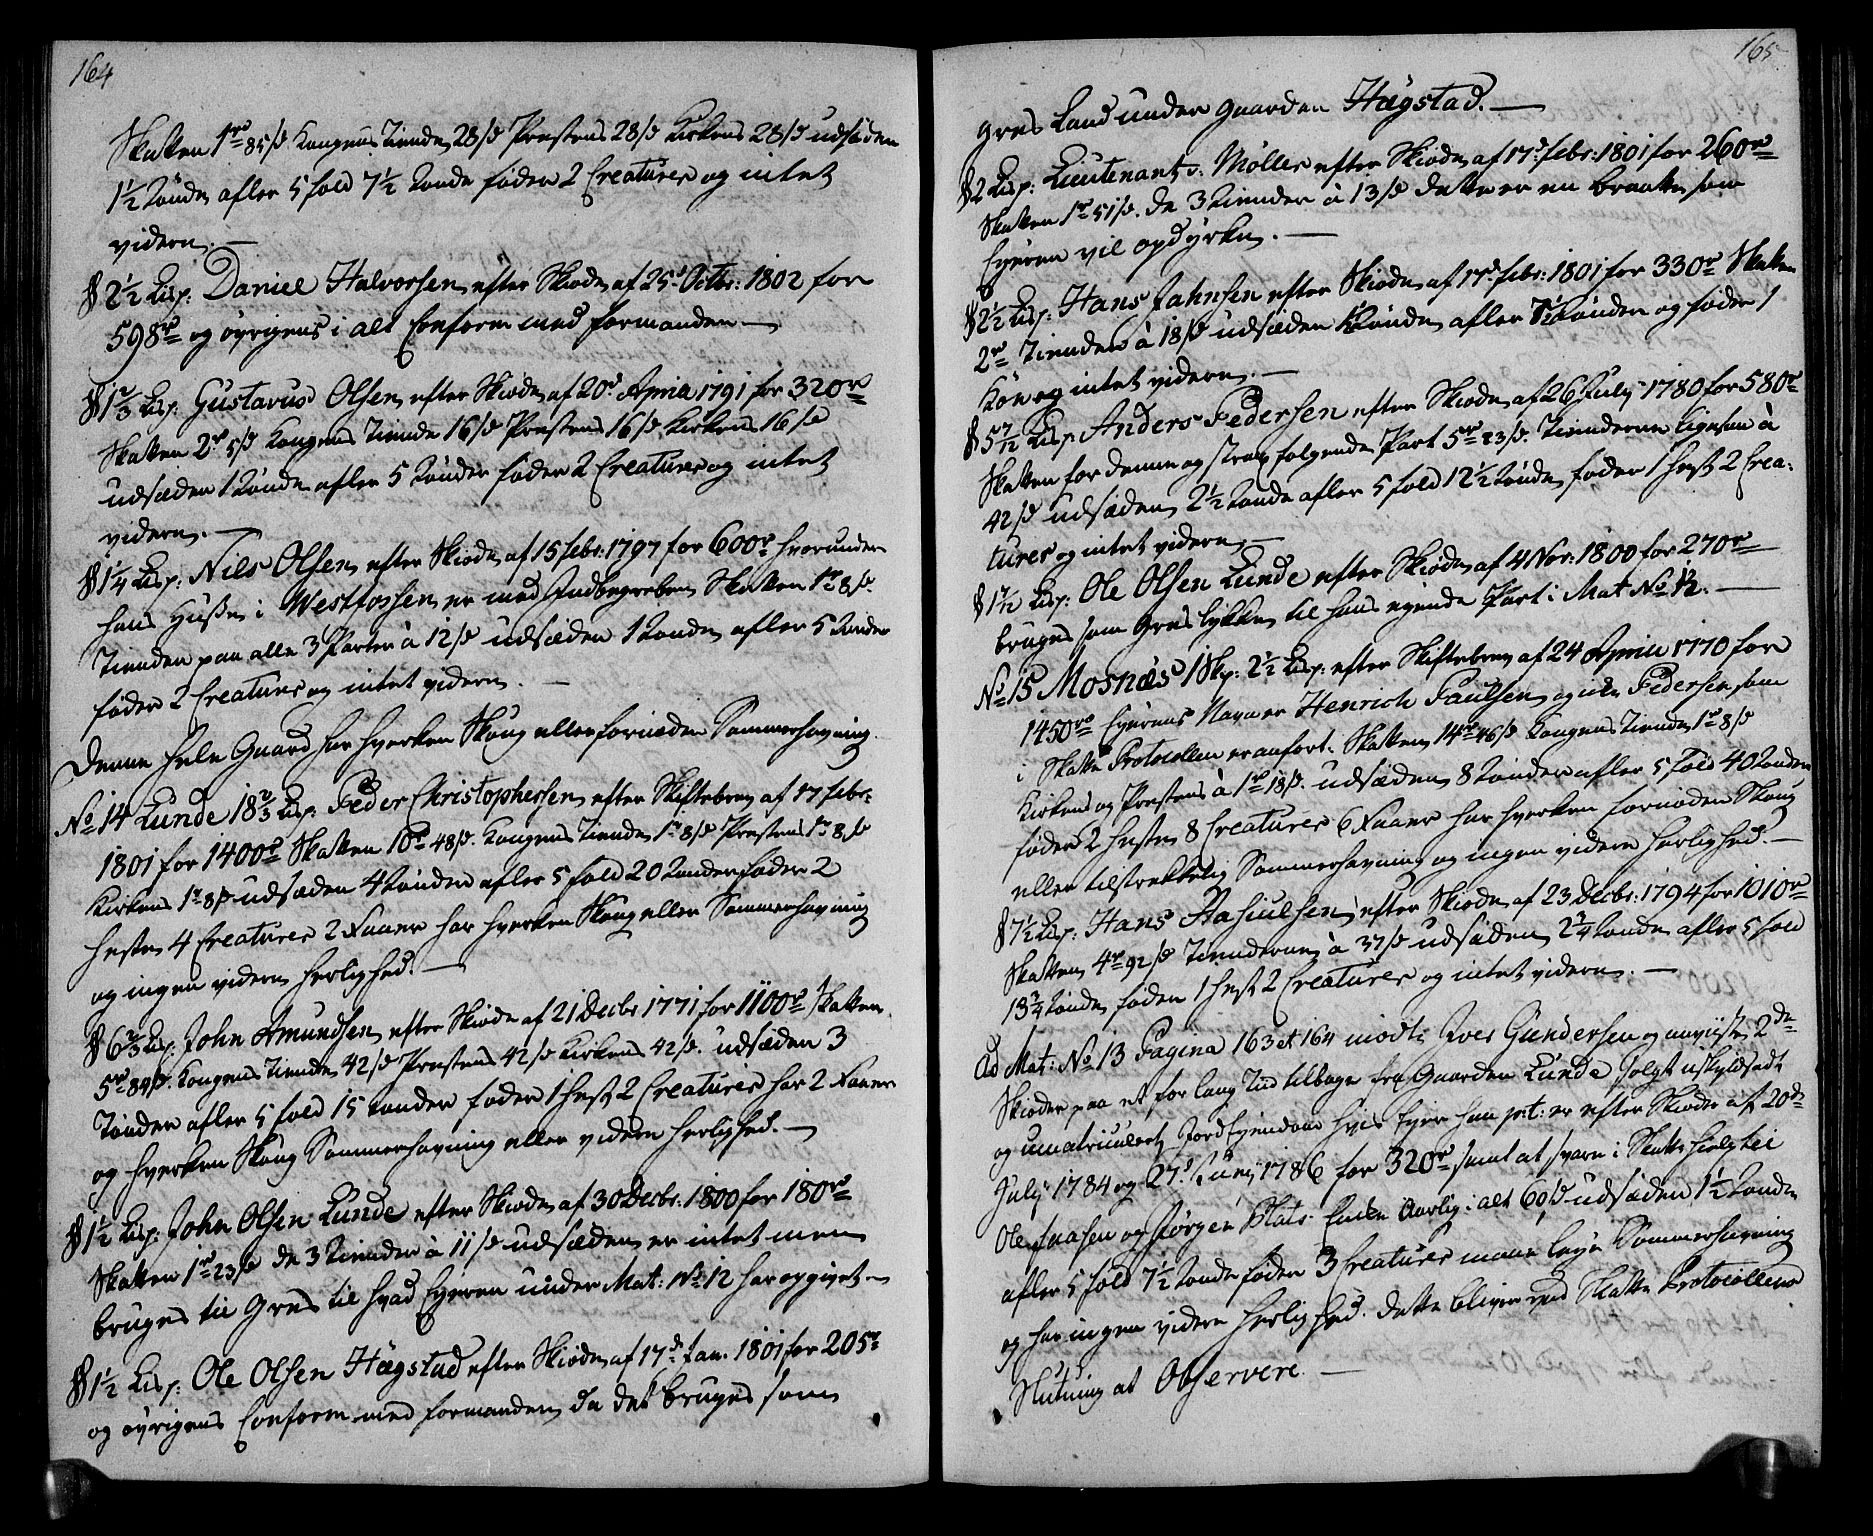 164
Skatten 1rd 85/s Kongens Tiende 28/s Prestens 28/s Kirkens 28/s udsæden
1½ Tönde afler 5 fold 7½ Tönde föder 2 Creaturer og intet
videre. —
§ 2½ Lisp: Daniel Halvorsen efter Skiöde af 25de Octbr: 1802 for
598rd og övrigens i alt Conform med formanden —
§ 1⅔ Lisp: Gustavus Olsen efter Skiöde af 20d Apriil 1791 for 320rd
Skatten 2rd 5/s Kongens Tiende 16/s Prestens 16/s Kirkens 16/s
udsæden 1 Tönde afler 5 Tönder föder 2 Creaturer og intet
videre. —
§ 1¼ Lisp: Nils Olsen efter Skiöde af 15 febr: 1797 for 600rd hvorunder
hans Huse i Westfossen er med Indbegreben Skatten 1rd 8/s.
Tienden paa alle 3 Parter à 12/s udsæden 1 Tönde afler 5 Tönder
föder 2 Creaturer og intet videre. —
Denne hele Gaard har hverken Skoug eller fornöden Sommerhavning
No 14 Lunde 18⅔ Lisp: Peder Christophersen efter Skiftebrev af 17 febr:
1801 for 1400rd Skatten 10rd 48/s. Kongens Tiende 1rd 8/s Prestens 1rd 8/s
Kirkens 1rd 8/s udsæden 4 Tönder afler 5 fold 20 Tönder föder 2
Heste 4 Creaturer 2 Faaer har hverken Skoug eller Sommerhavning
og ingen videre Herlighed. —
§ 6⅔ Lisp: John Amundsen efter Skiöde af 21 Decbr 1771 for 1100rd Skatten
5rd 84/s. Kongens Tiende 42/s Prestens 42/s Kirkens 42/s. udsæden 3
Tönder afler 5 fold 15 Tönder föder 1 Hest 2 Creaturer har 2 Faaer
og hverken Skoug Sommerhavning eller videre Herlighed. —
§ 1½ Lisp: John Olsen Lunde efter Skiöde af 30 Decbr: 1800 for 180rd
Skatten 1rd 23/s de 3 Tiender à 11/s udsæden er intet men
bruges til Græs til hvad Eyeren under Mat: No 12 har opgivet —
§ 1½ Lisp: Ole Olsen Hægstad efter Skiöde af 17de Jan. 1801 for 205rd
og övrigens Conform med formanden da det bruges som
165
Græs Land under Gaarden Hægstad. —
§ 2 Lisp: Lieutenant v: Möller efter Skiöde af 17d febr: 1801 for 260rd
Skatten 1rd 51/s. de 3 Tiender à 13/s dette er en Braatte som
Eyeren vil opdÿrke. —
§ 2½ Lisp: Hans Jahnsen efter Skiöde af 17d febr: 1801 for 330rd Skatten
2rd Tiender à 18/s udsæden Tönde afler Tönder og föder 1
Koe og intet videre. —
§ 5½ Lisp: Anders Pedersen efter Skiöde af 26 Julÿ 1780 for 580rd
Skatten for denne og strax folgende Part 5rd 23/s. Tienderne ligesaa à
42/s udsæden 2½ Tönde afler 5 fold 12½ Tönde föder 1 Hest 2 Crea:
turer og intet videre —
§ 1½ Lisp: Ole Olsen Lunde efter Skiöde af 4 Nov: 1800 for 270rd
bruges som Græs lykke til hans egende Part i Mat No 12. —
No 15 Mosnæs 1 Skp: 2½ Lisp: efter Skiftebrev af 24 Apriil 1770 for
1450rd Eyerens Navn er Henrich Paulsen og icke Pedersen som
i Skatte Protocollen er anfört. Skatten 14rd 46/s Kongens Tiende 1rd 8/s
Kirkens og Prestens à 1rd 18/s. udsæden 8 Tönder afler 5 fold 40 Tönder
föder 2 Heste 8 Creaturer 6 Faaer har hverken fornöden Skoug
eller tilstrekkelig Sommerhavning og ingen videre Herlighed. —
§ 7½ Lisp: Hans Aasiulsen efter Skiöde af 23 Decbr: 1794 for 1010rd
Skatten 4rd 92/s Tienderne à 37/s udsæden 2¾ Tönde afler 5 fold
13¾ Tönde föder 1 Hest 2 Creaturer og intet videre. —
Ad Mat: No 13 Pagina 163 et 164 mödte Iver Gundersen og anviiste 2de
Skiöder paa et for lang Tiid tilbage fra Gaarden Lunde solgt uskyldsadt
og umatriculert Jord Eyendom hvis Eyer han p: t: er efter Skiöde af 20de
Julÿ 1784 og 27d Junÿ 1786 for 320rd samt at svare i Skatte hielp til
Ole Isaksen og Jörgen Plats Enke Aarlig i alt 60/s udsæden 1½ Tönde
afler 5 fold 7½ Tönde föder 3 Creaturer maae leye Sommerhavning
og har ingen videre Herlighed. dette bliver ved Skatte Protocollens
Slutning at Observere. —